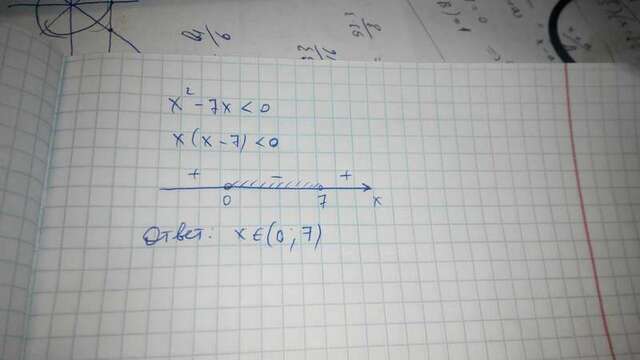 x² - 7x < 0
x(x - 7) < 0
+ - +
0 7 x
Ответ: x∈(0; 7)